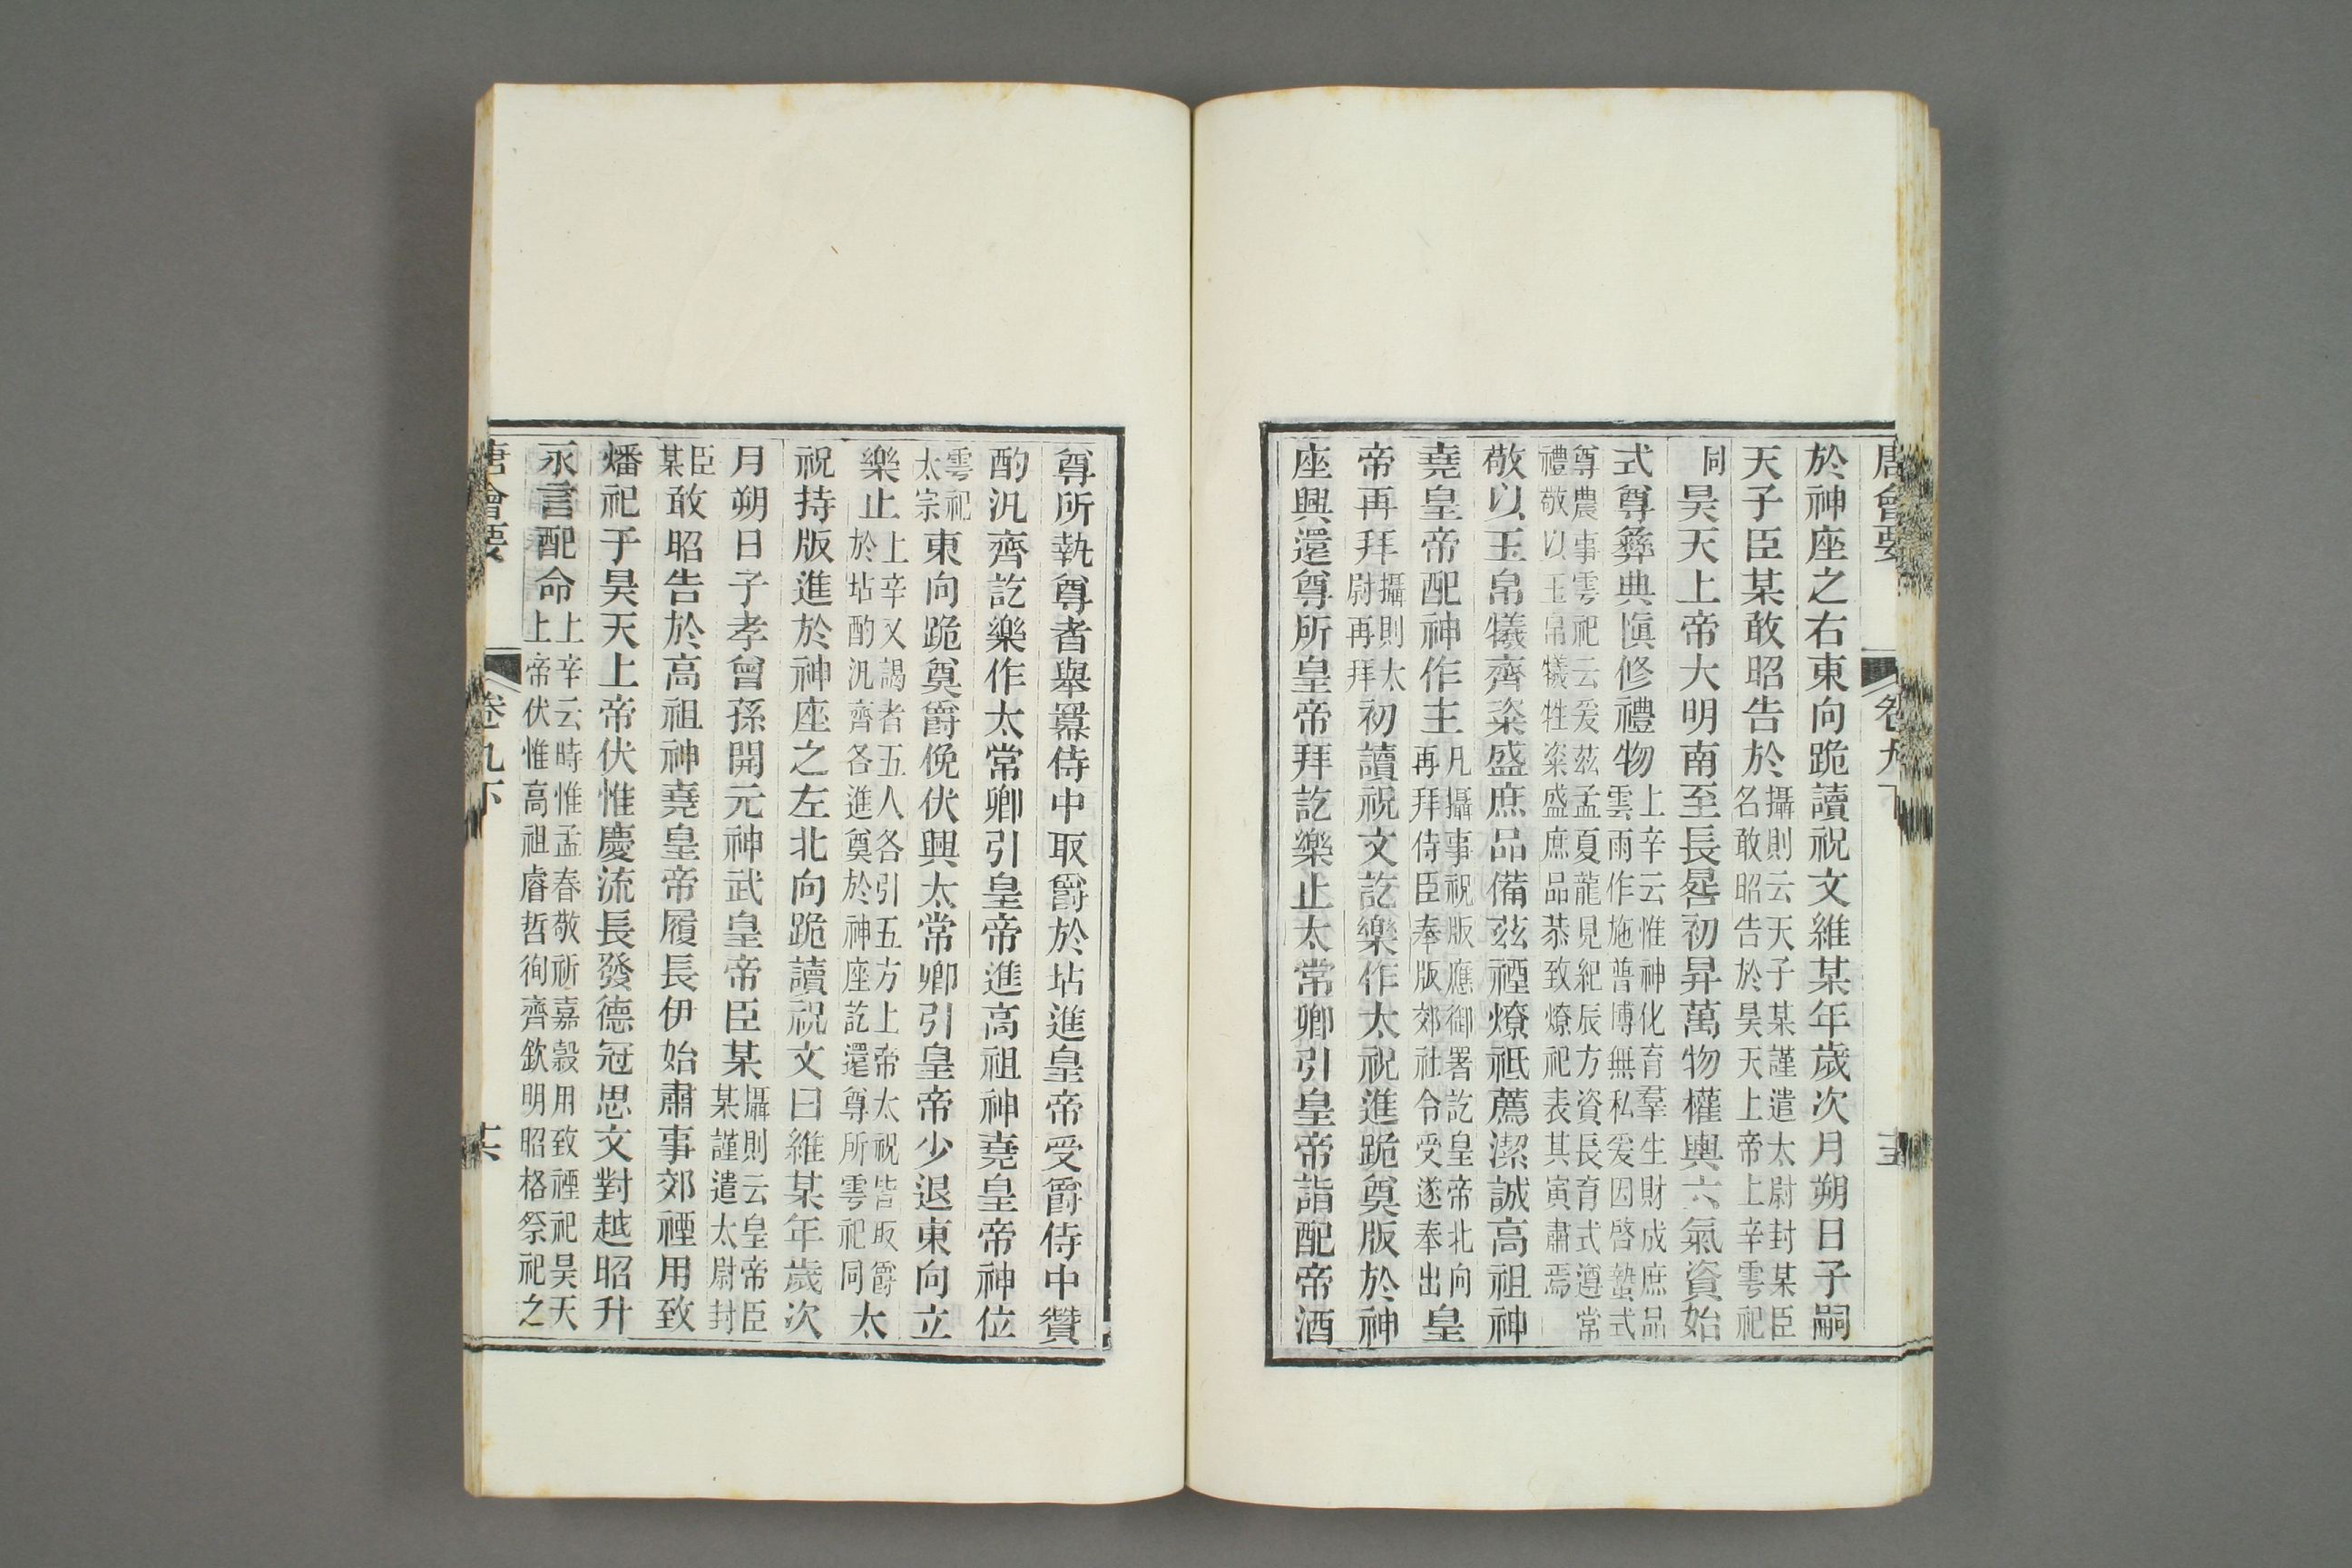 唐會要 卷九下 十五
於神座之右東向跪讀祝文維某年歲次月朔日子嗣
天子臣某敢昭告於攝則云天子某謹遣太尉封某臣名敢昭告於昊天上帝上辛雩祀
同昊天上帝大明南至長晷初昇萬物權輿六氣資始
式尊彝典愼修禮物上辛云惟神化育羣生財成庶品雲雨作施普博無私爰因啓蟄式
尊農事雩祀云爰茲孟夏龍見紀辰方資長育式遵常禮敬以玉帛犧牲粢盛庶品恭致燎祀表其寅肅焉
敬以玉帛犧齊粢盛庶品備茲禋燎祗薦潔誠高祖神
堯皇帝配神作主凡攝事祝版應御署訖皇帝北向再拜侍臣奉版郊社令受遂奉出皇
帝再拜攝則太尉再拜初讀祝文訖樂作太祝進跪奠版於神
座興還尊所皇帝拜訖樂止太常卿引皇帝詣配帝酒
尊所執尊者舉羃侍中取爵於坫進皇帝受爵侍中贊
酌汎齊訖樂作太常卿引皇帝進高祖神堯皇帝神位
雩祀太宗東向跪奠爵俛伏興太常卿引皇帝少退東向立
樂止上辛又謁者五人各引五方上帝太祝皆取爵於坫酌汎齊各進奠於神座訖還尊所雩祀同太
祝持版進於神座之左北向跪讀祝文曰維某年歲次
月朔日子孝曾孫開元神武皇帝臣某攝則云皇帝臣某謹遣太尉封
臣某敢昭告於高祖神堯皇帝履長伊始肅事郊禋用致
燔祀于昊天上帝伏惟慶流長發德冠思文對越昭升
永言配命上辛云時惟孟春敬祈嘉穀用致禋祀昊天上帝伏惟高祖睿哲徇齊欽明昭格祭祀之
唐會要 卷九下 十六